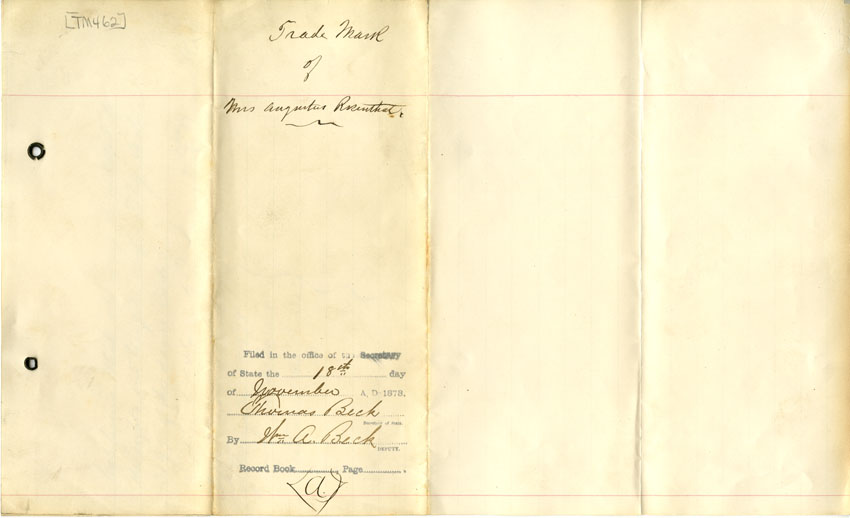 [TM462]
Trade Mark
of
Mrs Augustus Rosenthal.
Filed in the office of the Secretary
of State the 18th day
of November A.D. 1878.
Thomas Beck
Secretary of State.
By Wm A. Beck
DEPUTY.
Record Book , Page .
(a)